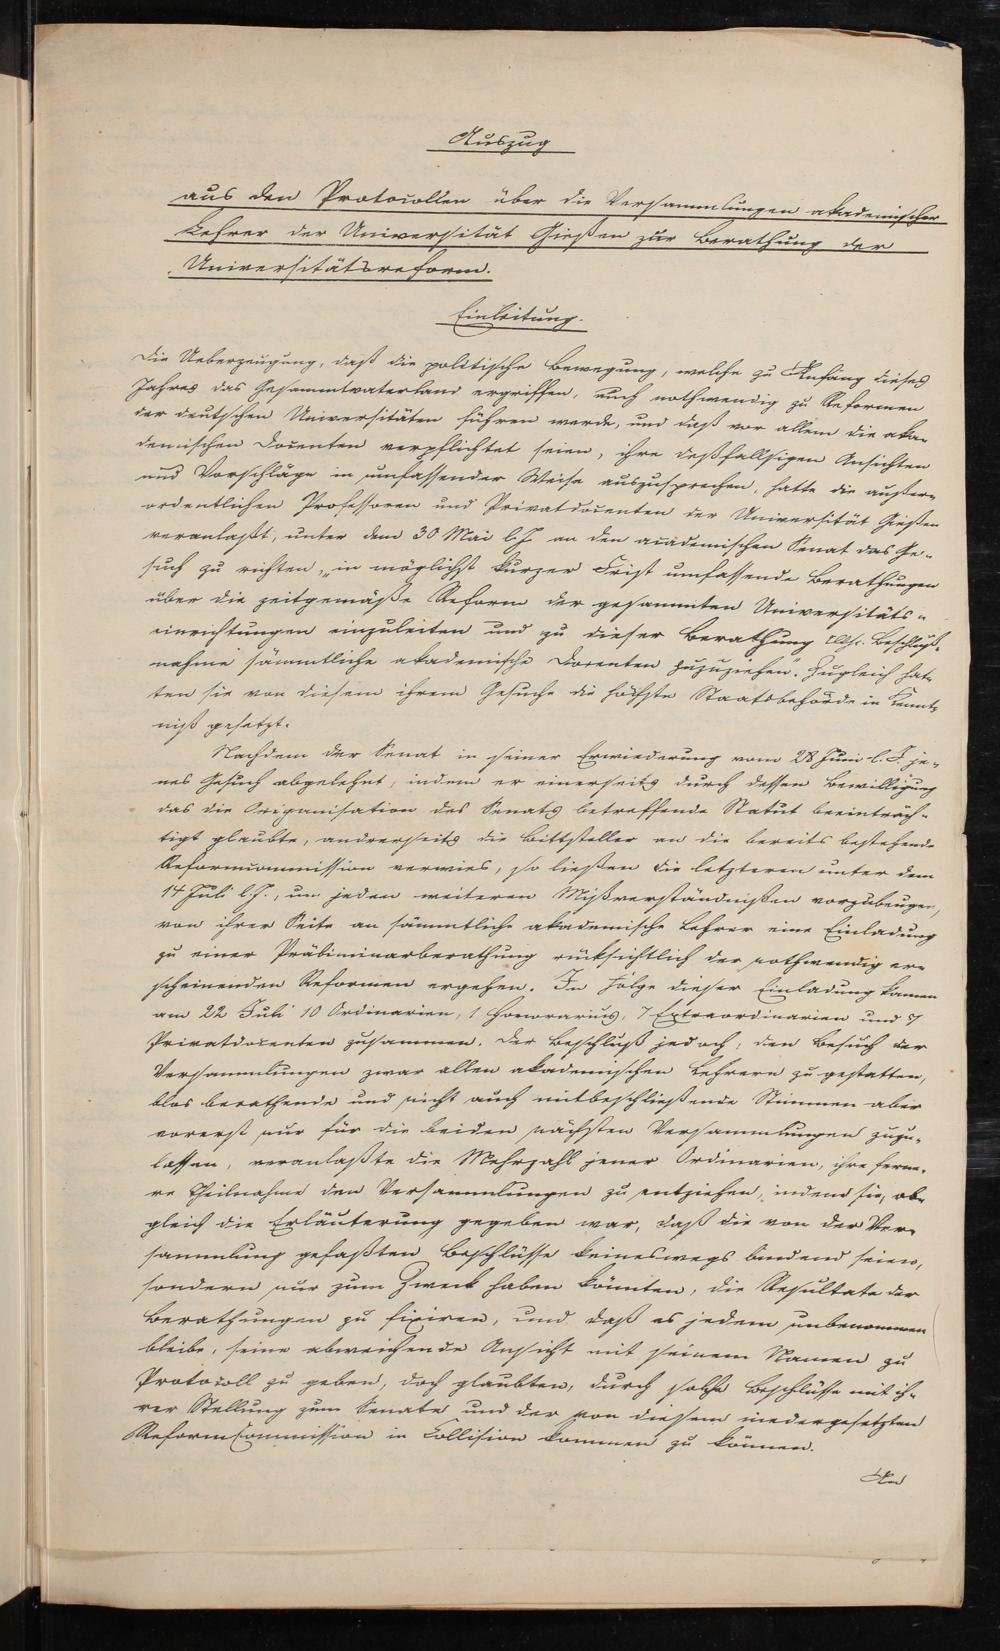 Auszug
aus den Protocollen über die Versammlungen akademischer
Lehrer der Universität Gießen zur Berathung der
Universitätsreform.
Einleitung.
Die Ueberzeugung, daß die politische Bewegung, welche zu Anfang dieses
Jahres das Gesammtvaterland ergriffen, auch nothwendig zu Reformen
der deutschen Universitäten führen werde, und daß vor allem die aka-
demischen Docenten verpflichtet seien, ihre deßfallsigen Ansichten
und Vorschläge in umfassender Weise auszusprechen, hatte die außer-
ordentlichen Professoren und Privatdocenten der Universität Gießen
veranlaßt, unter dem 30 Mai l. J. an den academischen Senat das Ge-
such zu richten, „in möglichst kurzer Frist umfassende Berathungen
über die zeitgemäße Reform der gesammten Universitäts-
einrichtungen einzuleiten und zu dieser Berathung Beschluß-
nahme sämmtliche akademische Docenten zuzuziehen". Zugleich hat-
ten sie von diesem ihrem Gesuche die höchste Staatsbehörde in Kennt-
niß gesetzt.
Nachdem der Senat in seiner Erwiederung vom 28 Juni l. J. je-
nes Gesuch abgelehnt, indem er einerseits durch dessen Bewilligung
das die Origanisation des Senats betreffende Statut beeinträch-
tigt glaubte, andrerseits die Bittsteller an die bereits bestehende
Reformcommission verwies, so ließen die letzteren unter dem
14 Juli l. J., um jeden weiteren Mißverständnißen vorzubeugen,
von ihrer Seite an sämmtliche akademische Lehrer eine Einladung
zu einer Präliminarberathung rücksichtlich der nothwendig er-
scheinenden Reformen ergehen. In Folge dieser Einladung kamen
am 22 Juli 10 Ordinarien, 1 Honorarius, 7 Extraordinarien und 7
Privatdocenten zusammen. Der Beschluß jedoch, den Besuch der
Versammlungen zwar allen akademischen Lehrern zu gestatten,
blos berathende und nicht auch mitbeschließende Stimmen aber
vorerst nur für die beiden nächsten Versammlungen zuzu-
lassen, veranlaßte die Mehrzahl jener Ordinarien, ihre ferne-
re Theilnahme den Versammlungen zu entziehen, indem sie, ob-
gleich die Erläuterung gegeben war, daß die von der Ver-
sammlung gefaßten Beschlüsse keineswegs bindend seien,
sondern nur zum Zweck haben könnten, die Resultate der
Berathungen zu fixiren, und daß es jedem unbenommen
bleibe, seine abweichende Ansicht mit seinem Namen zu
Protocoll zu geben, doch glaubten, durch solche Beschlüsse mit ih-
rer Stellung zum Senate und der von diesem niedergesetzten
Reformcommission in Collision kommen zu können.
An